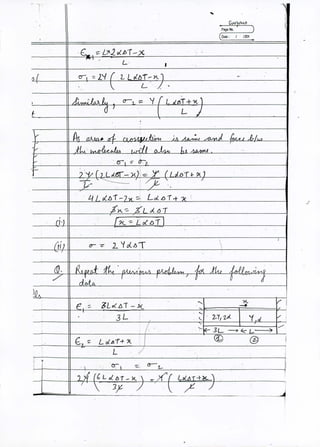 Page No.
Date: / / 20
ϵx₁ = L×2×αT-x
L
σ₁ = 2Y ( 2LαΔT-x )
L
Similarly , σ₂ = Y ( LαΔT+x )
L
As area of crossection is same and force b/w
the molecules will also be same.
σ₁ = σ₂
2Y (2LαΔT-x) = Y (LαΔT+x)
L L
4LαΔT-2x = LαΔT+x
3x = 3LαΔT
(i) x = LαΔT
(ii) σ = 2YαΔT
Q. Repeat the previous problem, for the following
data.
ϵ₁ = 3LαΔT - x
3L
x
2Y,2α Y,α
3L L
① ②
ϵ₂ = LαΔT+x
L
σ₁ = σ₂
2Y (6LαΔT-x) = Y ( LαΔT+x )
3L L